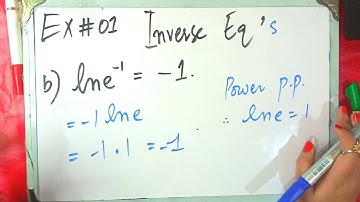 EX#01 Inverse Eq's
b) lne⁻¹ = -1.
= -1 lne
= -1 · 1 = -1
Power p.p.
∴ lne = 1